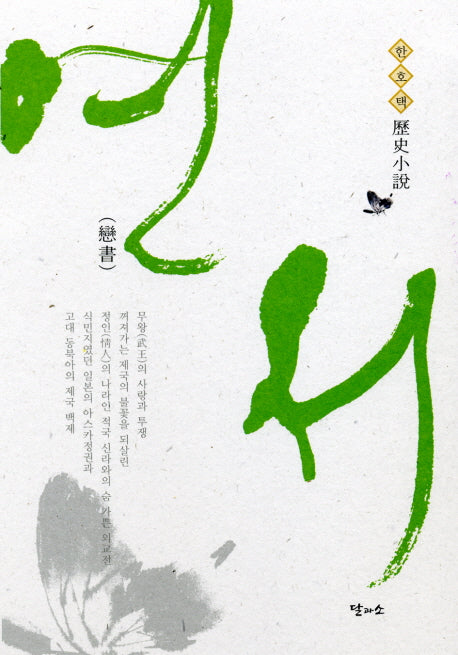 한호택
歷史小說
연서
(戀書)
무왕(武王)의 사랑과 투쟁
꺼져가는 제국의 불꽃을 되살린
정인(情人)의 나라인 적국 신라와의 숨 가쁜 외교전
식민지였던 일본의 아스카정권과
고대 동북아의 제국 백제
달과소